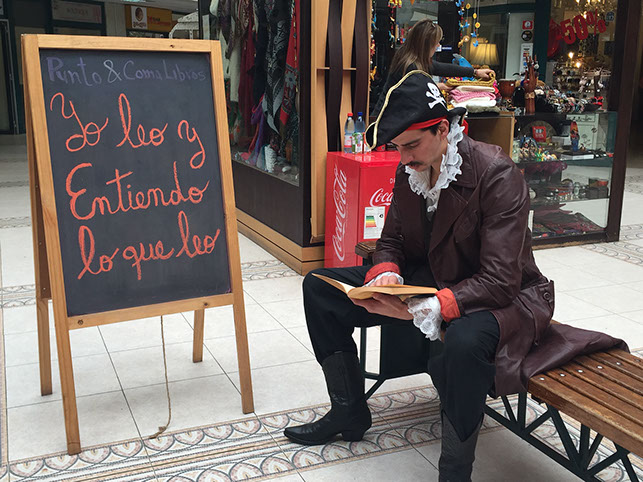 Punto & Coma Libros
Yo leo y
Entiendo
lo que leo
Coca-Cola
Coca-Cola